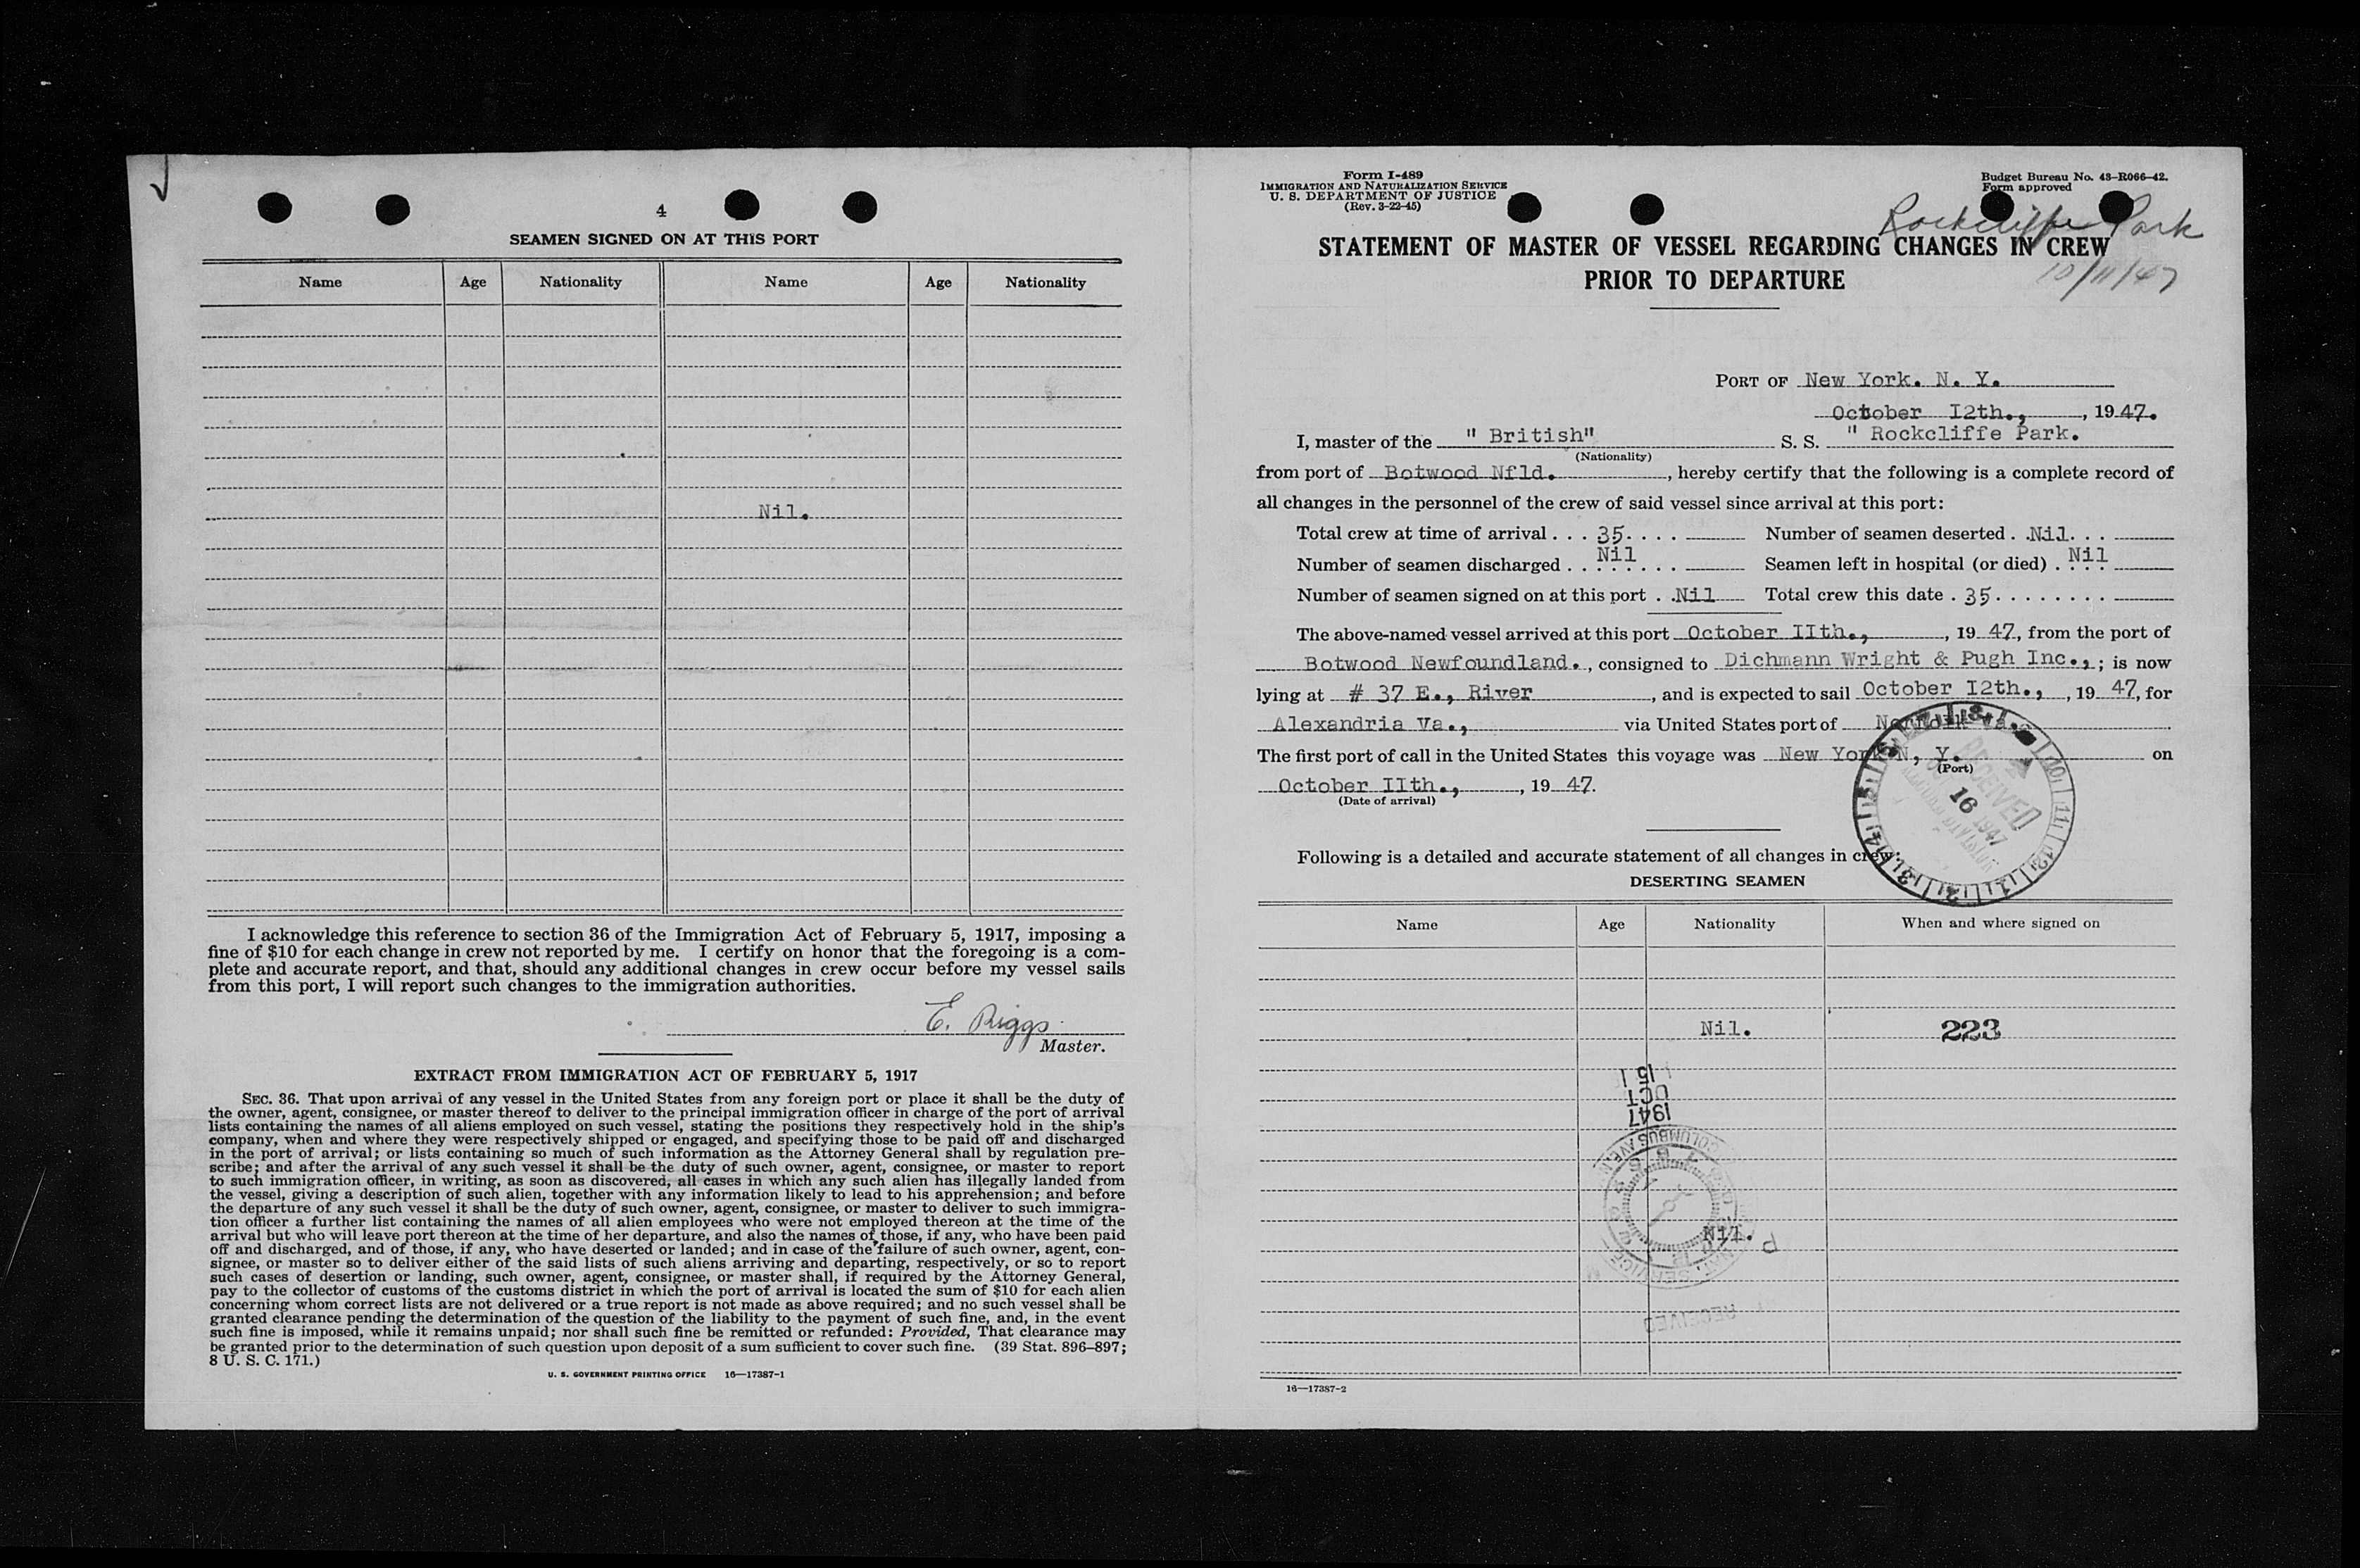 4
SEAMEN SIGNED ON AT THIS PORT
Name Age Nationality Name Age Nationality
Nil.
I acknowledge this reference to section 36 of the Immigration Act of February 5, 1917, imposing a
fine of $10 for each change in crew not reported by me. I certify on honor that the foregoing is a com-
plete and accurate report, and that, should any additional changes in crew occur before my vessel sails
from this port, I will report such changes to the immigration authorities.
E. Riggs
Master.
EXTRACT FROM IMMIGRATION ACT OF FEBRUARY 5, 1917
SEC. 36. That upon arrival of any vessel in the United States from any foreign port or place it shall be the duty of
the owner, agent, consignee, or master thereof to deliver to the principal immigration officer in charge of the port of arrival
lists containing the names of all aliens employed on such vessel, stating the positions they respectively hold in the ship's
company, when and where they were respectively shipped or engaged, and specifying those to be paid off and discharged
in the port of arrival; or lists containing so much of such information as the Attorney General shall by regulation pre-
scribe; and after the arrival of any such vessel it shall be the duty of such owner, agent, consignee, or master to report
to such immigration officer, in writing, as soon as discovered, all cases in which any such alien has illegally landed from
the vessel, giving a description of such alien, together with any information likely to lead to his apprehension; and before
the departure of any such vessel it shall be the duty of such owner, agent, consignee, or master to deliver to such immigra-
tion officer a further list containing the names of all alien employees who were not employed thereon at the time of the
arrival but who will leave port thereon at the time of her departure, and also the names of those, if any, who have been paid
off and discharged, and of those, if any, who have deserted or landed; and in case of the failure of such owner, agent, con-
signee, or master so to deliver either of the said lists of such aliens arriving and departing, respectively, or so to report
such cases of desertion or landing, such owner, agent, consignee, or master shall, if required by the Attorney General,
pay to the collector of customs of the customs district in which the port of arrival is located the sum of $10 for each alien
concerning whom correct lists are not delivered or a true report is not made as above required; and no such vessel shall be
granted clearance pending the determination of the question of the liability to the payment of such fine, and, in the event
such fine is imposed, while it remains unpaid; nor shall such fine be remitted or refunded: Provided, That clearance may
be granted prior to the determination of such question upon deposit of a sum sufficient to cover such fine. (39 Stat. 896–897;
8 U. S. C. 171.)
U. S. GOVERNMENT PRINTING OFFICE 16—17387-1
Form I-489
IMMIGRATION AND NATURALIZATION SERVICE
U. S. DEPARTMENT OF JUSTICE
(Rev. 3-22-45)
Budget Bureau No. 43-R066-42.
Form approved
Rockcliffe Park
STATEMENT OF MASTER OF VESSEL REGARDING CHANGES IN CREW
PRIOR TO DEPARTURE
10/11/47
PORT OF New York. N. Y.
October I2th., , 19 47.
I, master of the " British" S. S. " Rockcliffe Park.
(Nationality)
from port of Botwood Nfld. , hereby certify that the following is a complete record of
all changes in the personnel of the crew of said vessel since arrival at this port:
Total crew at time of arrival . . . 35. . . . Number of seamen deserted . . Nil. . .
Number of seamen discharged . . Nil . . . Seamen left in hospital (or died) . Nil
Number of seamen signed on at this port . . Nil Total crew this date . 35. . . . . . . .
The above-named vessel arrived at this port October IIth., , 19 47, from the port of
Botwood Newfoundland. , consigned to Dichmann Wright & Pugh Inc., ; is now
lying at # 37 E., River , and is expected to sail October I2th., , 19 47, for
Alexandria Va., via United States port of Norfolk Va.
The first port of call in the United States this voyage was New York N, Y. on
(Port)
October IIth., , 19 47.
(Date of arrival)
RECEIVED
16
1947
DIVISION
Following is a detailed and accurate statement of all changes in crew:
DESERTING SEAMEN
Name Age Nationality When and where signed on
Nil. 223
15
OCT
1947
COLUMBUS AVE.
Nil.
P
RECEIVED
16—17387-2